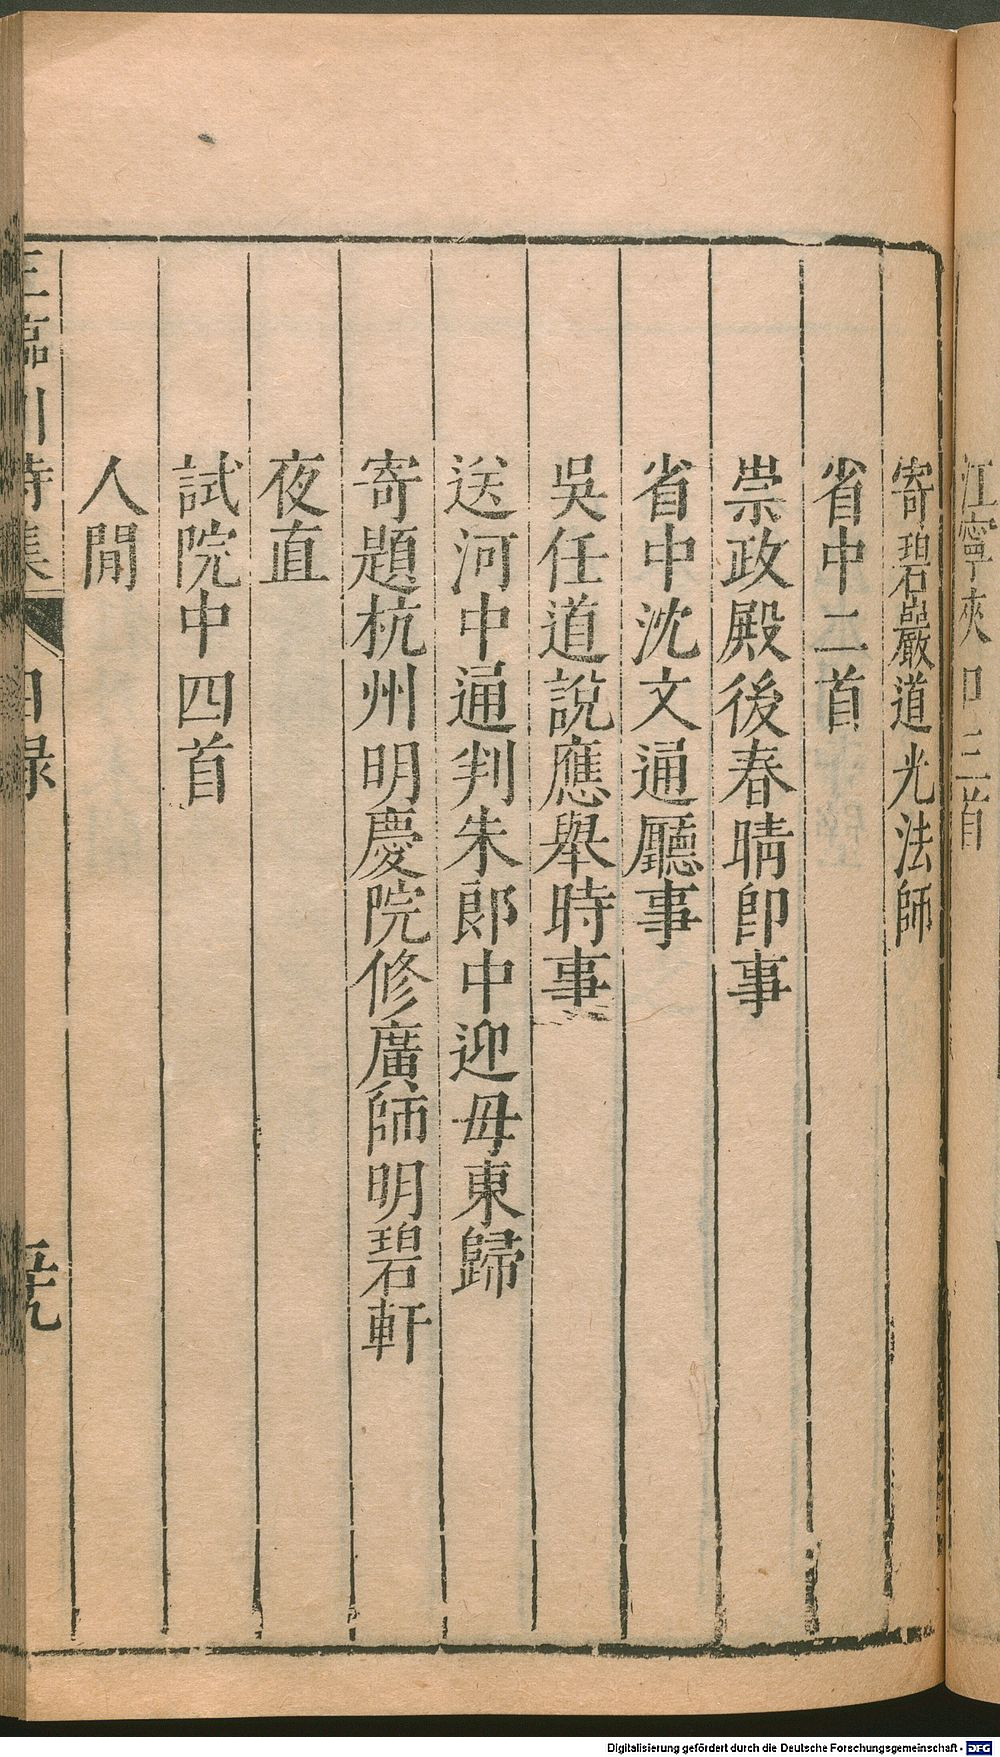 江寧夾口三首
寄碧巖道光法師
省中二首
崇政殿後春晴卽事
省中沈文通廳事
吳任道說應舉時事
送河中通判朱郎中迎母東歸
寄題杭州明慶院修廣師明碧軒
夜直
試院中四首
人閒
王臨川詩集 目録
Digitalisierung gefördert durch die Deutsche Forschungsgemeinschaft - DFG